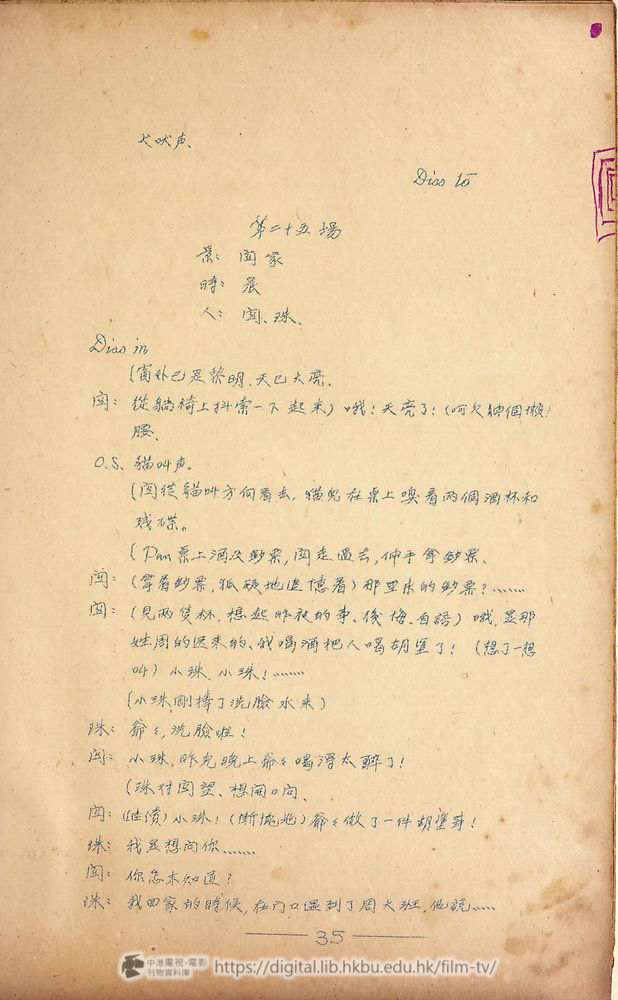 犬吠声、
Diss to
第二十五場
景：閔家
時：晨
人：閔、珠、
Diss in
（窗外已是黎明、天已大亮、
閔：從躺椅上抖索一下起来）哦！天亮了！（呵欠伸個懶
腰、
O.S. 貓叫声。
（閔從貓叫方向看去，貓兒在桌上嗅着兩個酒杯和
残碟。
（Pan 桌上酒及鈔票，閔走過去，伸手拿鈔票、
閔：（拿着鈔票，狐疑地追憶着）那里来的鈔票？……
閔：（見兩隻杯，想起昨夜的事、後悔、自語）哦，是那
姓周的送来的、我喝酒把人喝胡塗了！（想了一想
叫）小珠、小珠！……
（小珠剛捧了洗臉水来）
珠：爺〻，洗臉啦！
閔：小珠，昨兒晚上爺〻喝得太醉了！
（珠待閔望、想開口问、
閔：（继續）小珠！（慚愧地）爺〻做了一件胡塗事！
珠：我是想问你……
閔：你怎末知道？
珠：我回家的時候，在门口遇到了周大班，他說……
35
中港電視·電影
刊物資料庫
https://digital.lib.hkbu.edu.hk/film-tv/